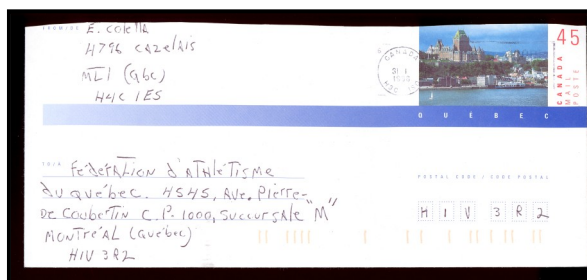 FROM/DE E. Colella
4796 Cazelais
MTL (Qbc)
H4C 1E5
CANADA
45
CANADA
MAIL POSTE
QUÉBEC
TO/À Fédération d'Athlétisme
du Québec. 4545, Ave. Pierre-
De Coubertin C.P. 1000, Succursale "M"
Montréal (Québec)
H1V 3R2
POSTAL CODE / CODE POSTAL
H 1 V 3 R 2